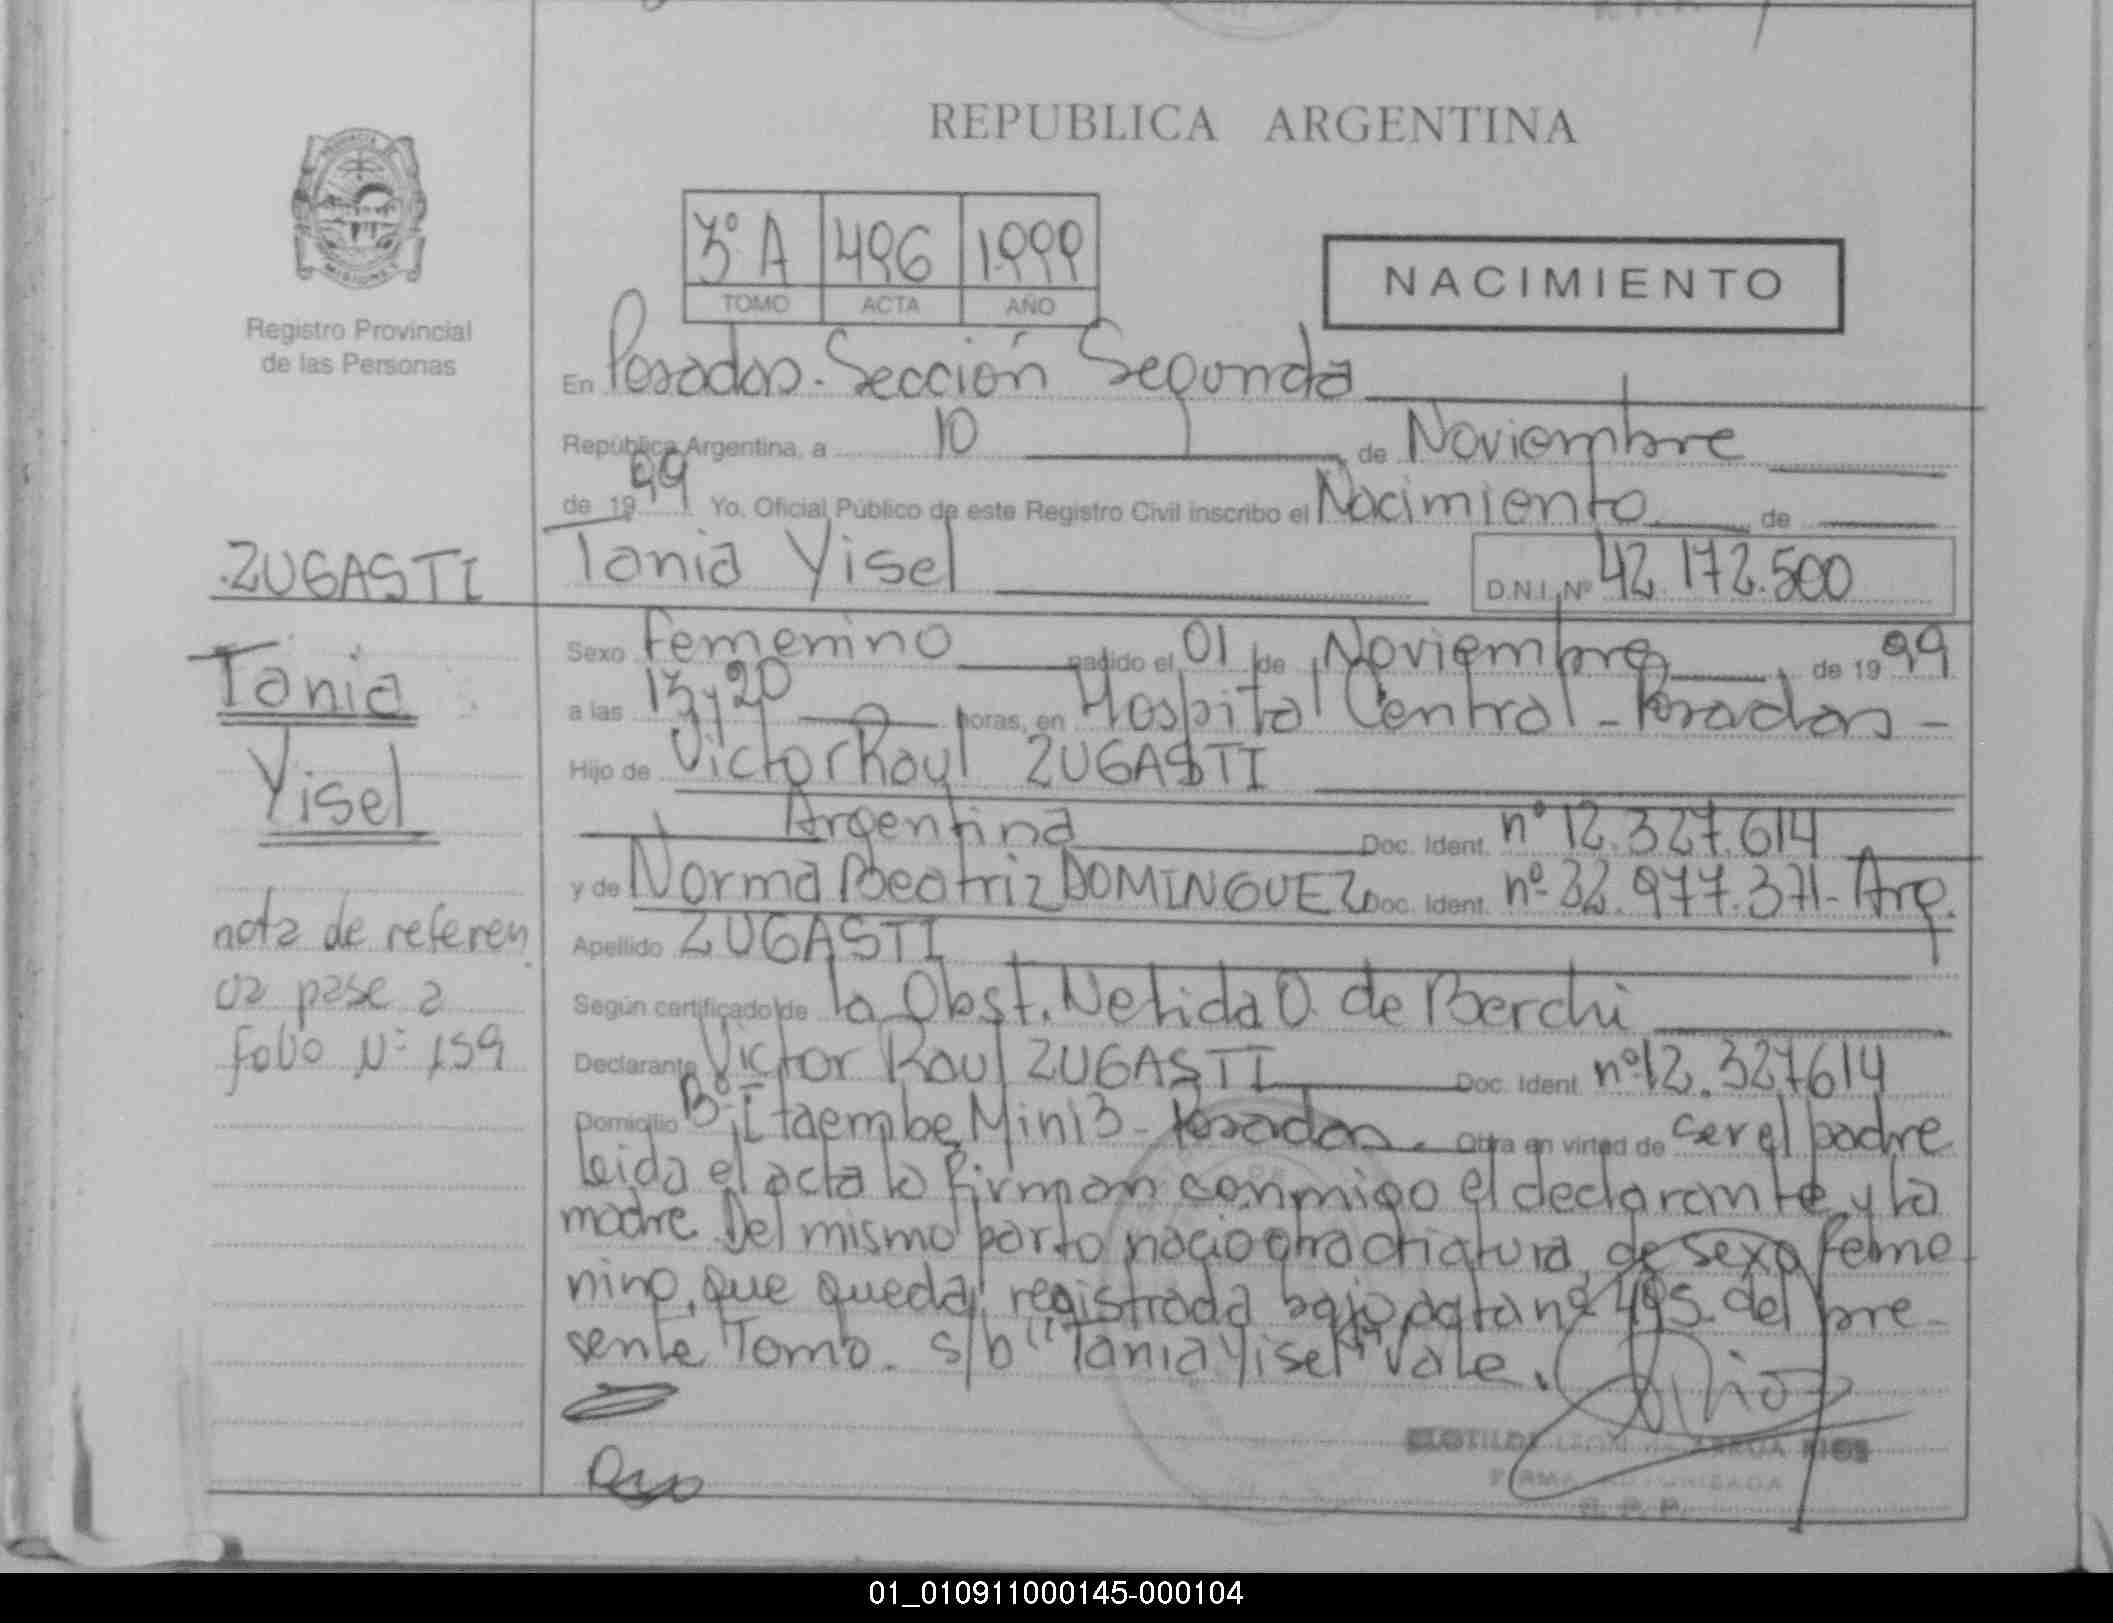 REPUBLICA ARGENTINA
3º A 496 1999
TOMO ACTA AÑO
NACIMIENTO
Registro Provincial
de las Personas
En Posadas. Sección Segunda
República Argentina, a 10 de Noviembre
de 1999 Yo, Oficial Público de este Registro Civil inscribo el Nacimiento de
ZUGASTI
Tania Yisel D.N.I. Nº 42.172.500
Sexo Femenino nacido el 01 de Noviembre de 1999
Tania
a las 13 y 20 horas, en Hospital Central - Posadas -
Yisel
Hijo de Victor Raul ZUGASTI
Argentina Doc. Ident. nº 12.327.614
y de Norma Beatriz DOMINGUEZ Doc. Ident. nº 32.977.371 - Arg.
nota de referen
cia pase a
folio Nº 159
Apellido ZUGASTI
Según certificado de la Obst. Nelida O. de Berchi
Declarante Victor Raul ZUGASTI Doc. Ident. nº 12.327614
Domicilio Bº Itaembe Mini 3 - Posadas. Obra en virted de ser el padre
leida el acta la firman conmigo el declarante y la
madre. Del mismo parto nacio otra criatura de sexo feme
nino, que queda registrada bajo acta nº 495 del pre-
sente Tomo. s/b "Tania Yisel" Vale.
FIRMA AUTORIZADA
R. P. P.
01_010911000145-000104